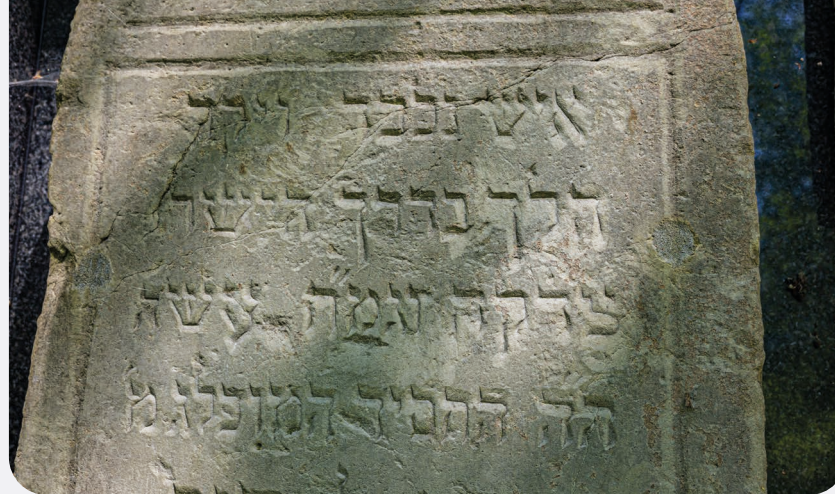 איש נכבד ויקר
הלך בדרך הישר
צדקה עמ״ו עשה
ה״ה החסיד המופלג מ׳